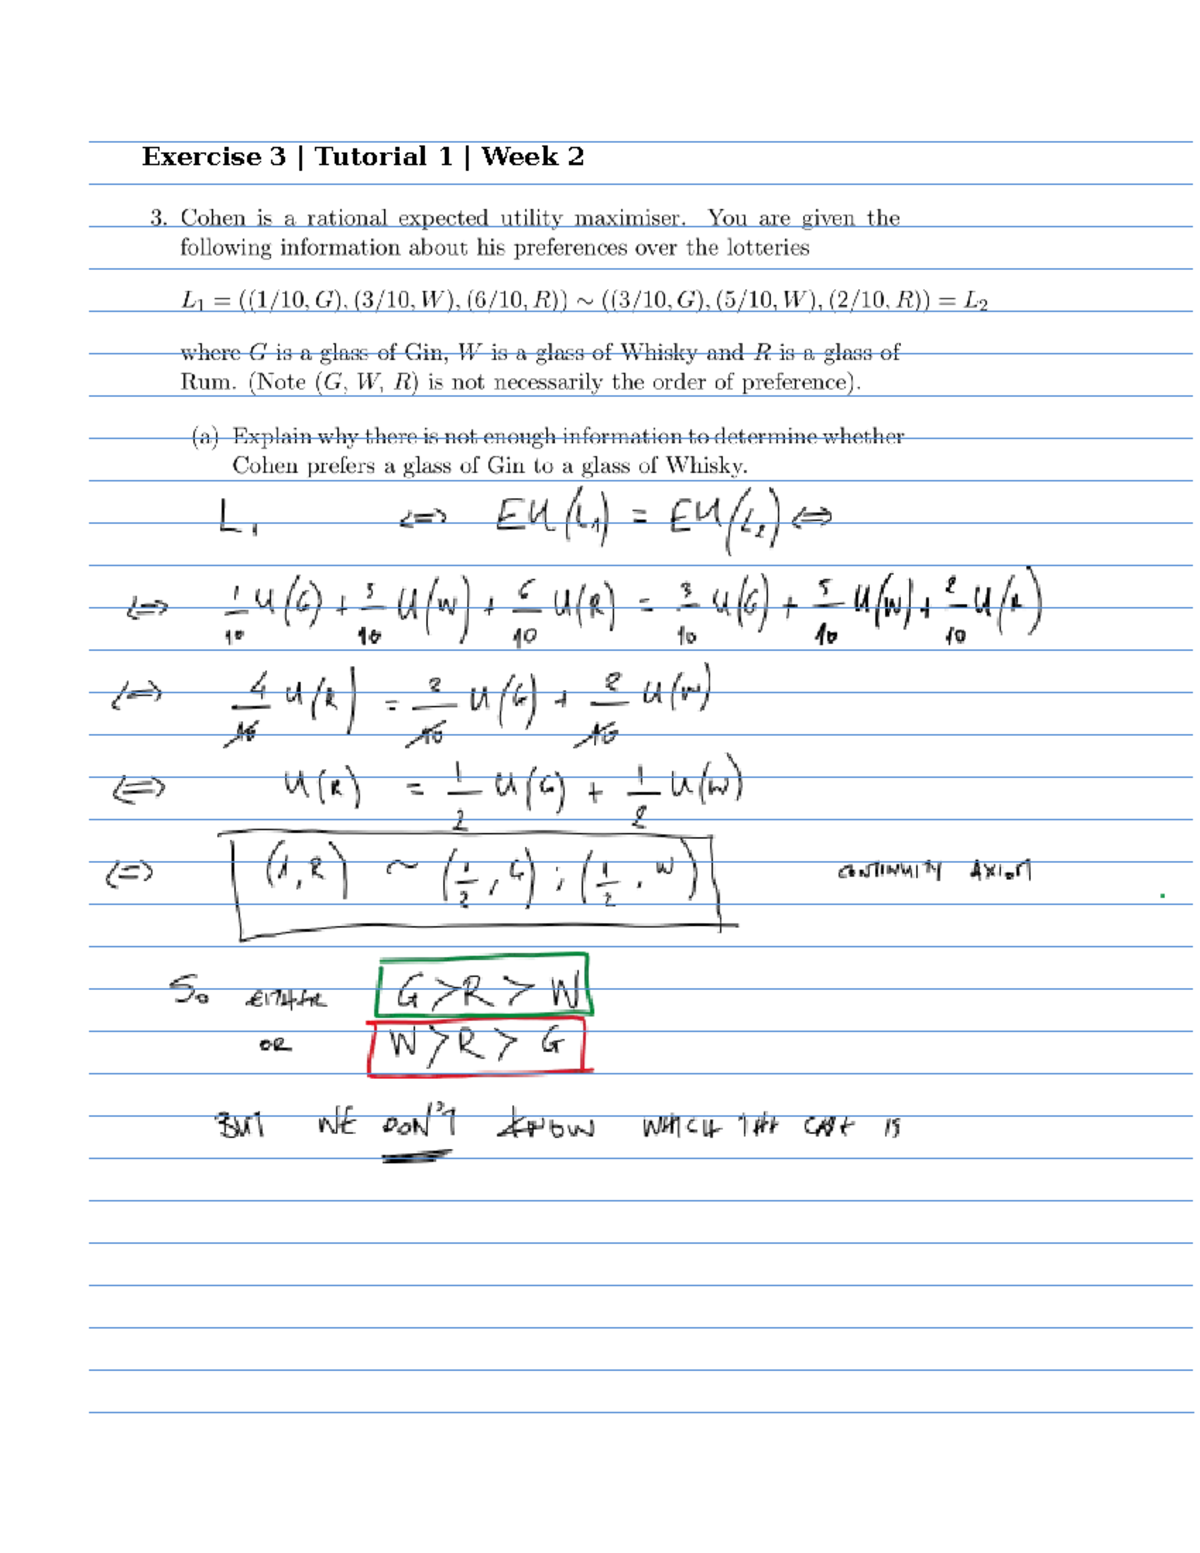 Exercise 3 | Tutorial 1 | Week 2
3. Cohen is a rational expected utility maximiser. You are given the
following information about his preferences over the lotteries
L₁ = ((1/10, G), (3/10, W), (6/10, R)) ∼ ((3/10, G), (5/10, W), (2/10, R)) = L₂
where G is a glass of Gin, W is a glass of Whisky and R is a glass of
Rum. (Note (G, W, R) is not necessarily the order of preference).
(a) Explain why there is not enough information to determine whether
Cohen prefers a glass of Gin to a glass of Whisky.
L₁ ⇔ EU(L₁) = EU(L₂) ⇔
⇔ 1/10 U(G) + 3/10 U(W) + 6/10 U(R) = 3/10 U(G) + 5/10 U(W) + 2/10 U(R)
⇔ 4/10 U(R) = 2/10 U(G) + 2/10 U(W)
⇔ U(R) = 1/2 U(G) + 1/2 U(W)
⇔ (1, R) ~ (1/2, G) ; (1/2, W) CONTINUITY AXIOM
SO EITHER G > R > W
OR W > R > G
BUT WE DON'T KNOW WHICH THE CASE IS